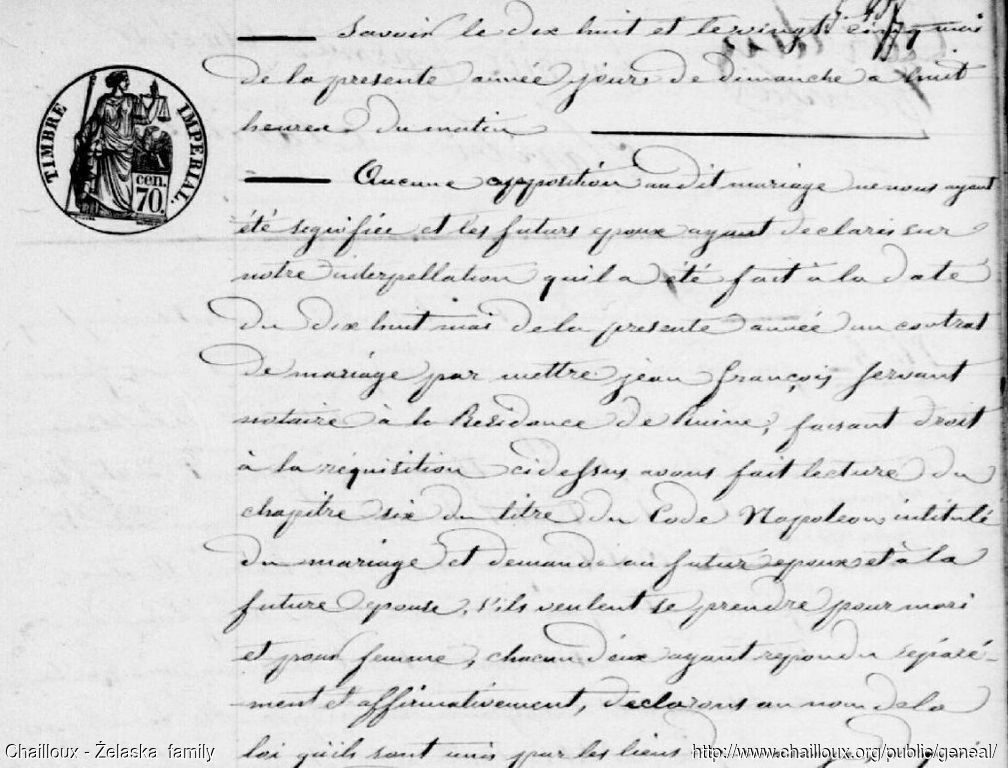 Savoir le dix huit et le vingt cinq mai
de la presente année, jours de dimanche a huit
heures du matin
TIMBRE IMPERIAL.
cen.
70.
Aucune opposition audit mariage ne nous ayant
été signifiée et les futurs epoux ayant declarés sur
notre interpellation qu'il a été fait à la date
du dix huit mai de la presente année un contrat
de mariage par mettre jean françois servant
notaire à la Residence de Ruine, faisant droit
à la réquisition ci dessus, avons fait lecture du
chapitre six du titre du Code Napoleon, intitulé
du mariage et demandé au futur epoux et à la
future epouse, s'ils veulent se prendre pour mari
et pour femme, chacun d'eux ayant repondu séparé-
-ment et affirmativement, declarons au nom de la
loi qu'ils sont unis par les liens
Chailloux - Želaska family
http://www.chailloux.org/public/geneal/